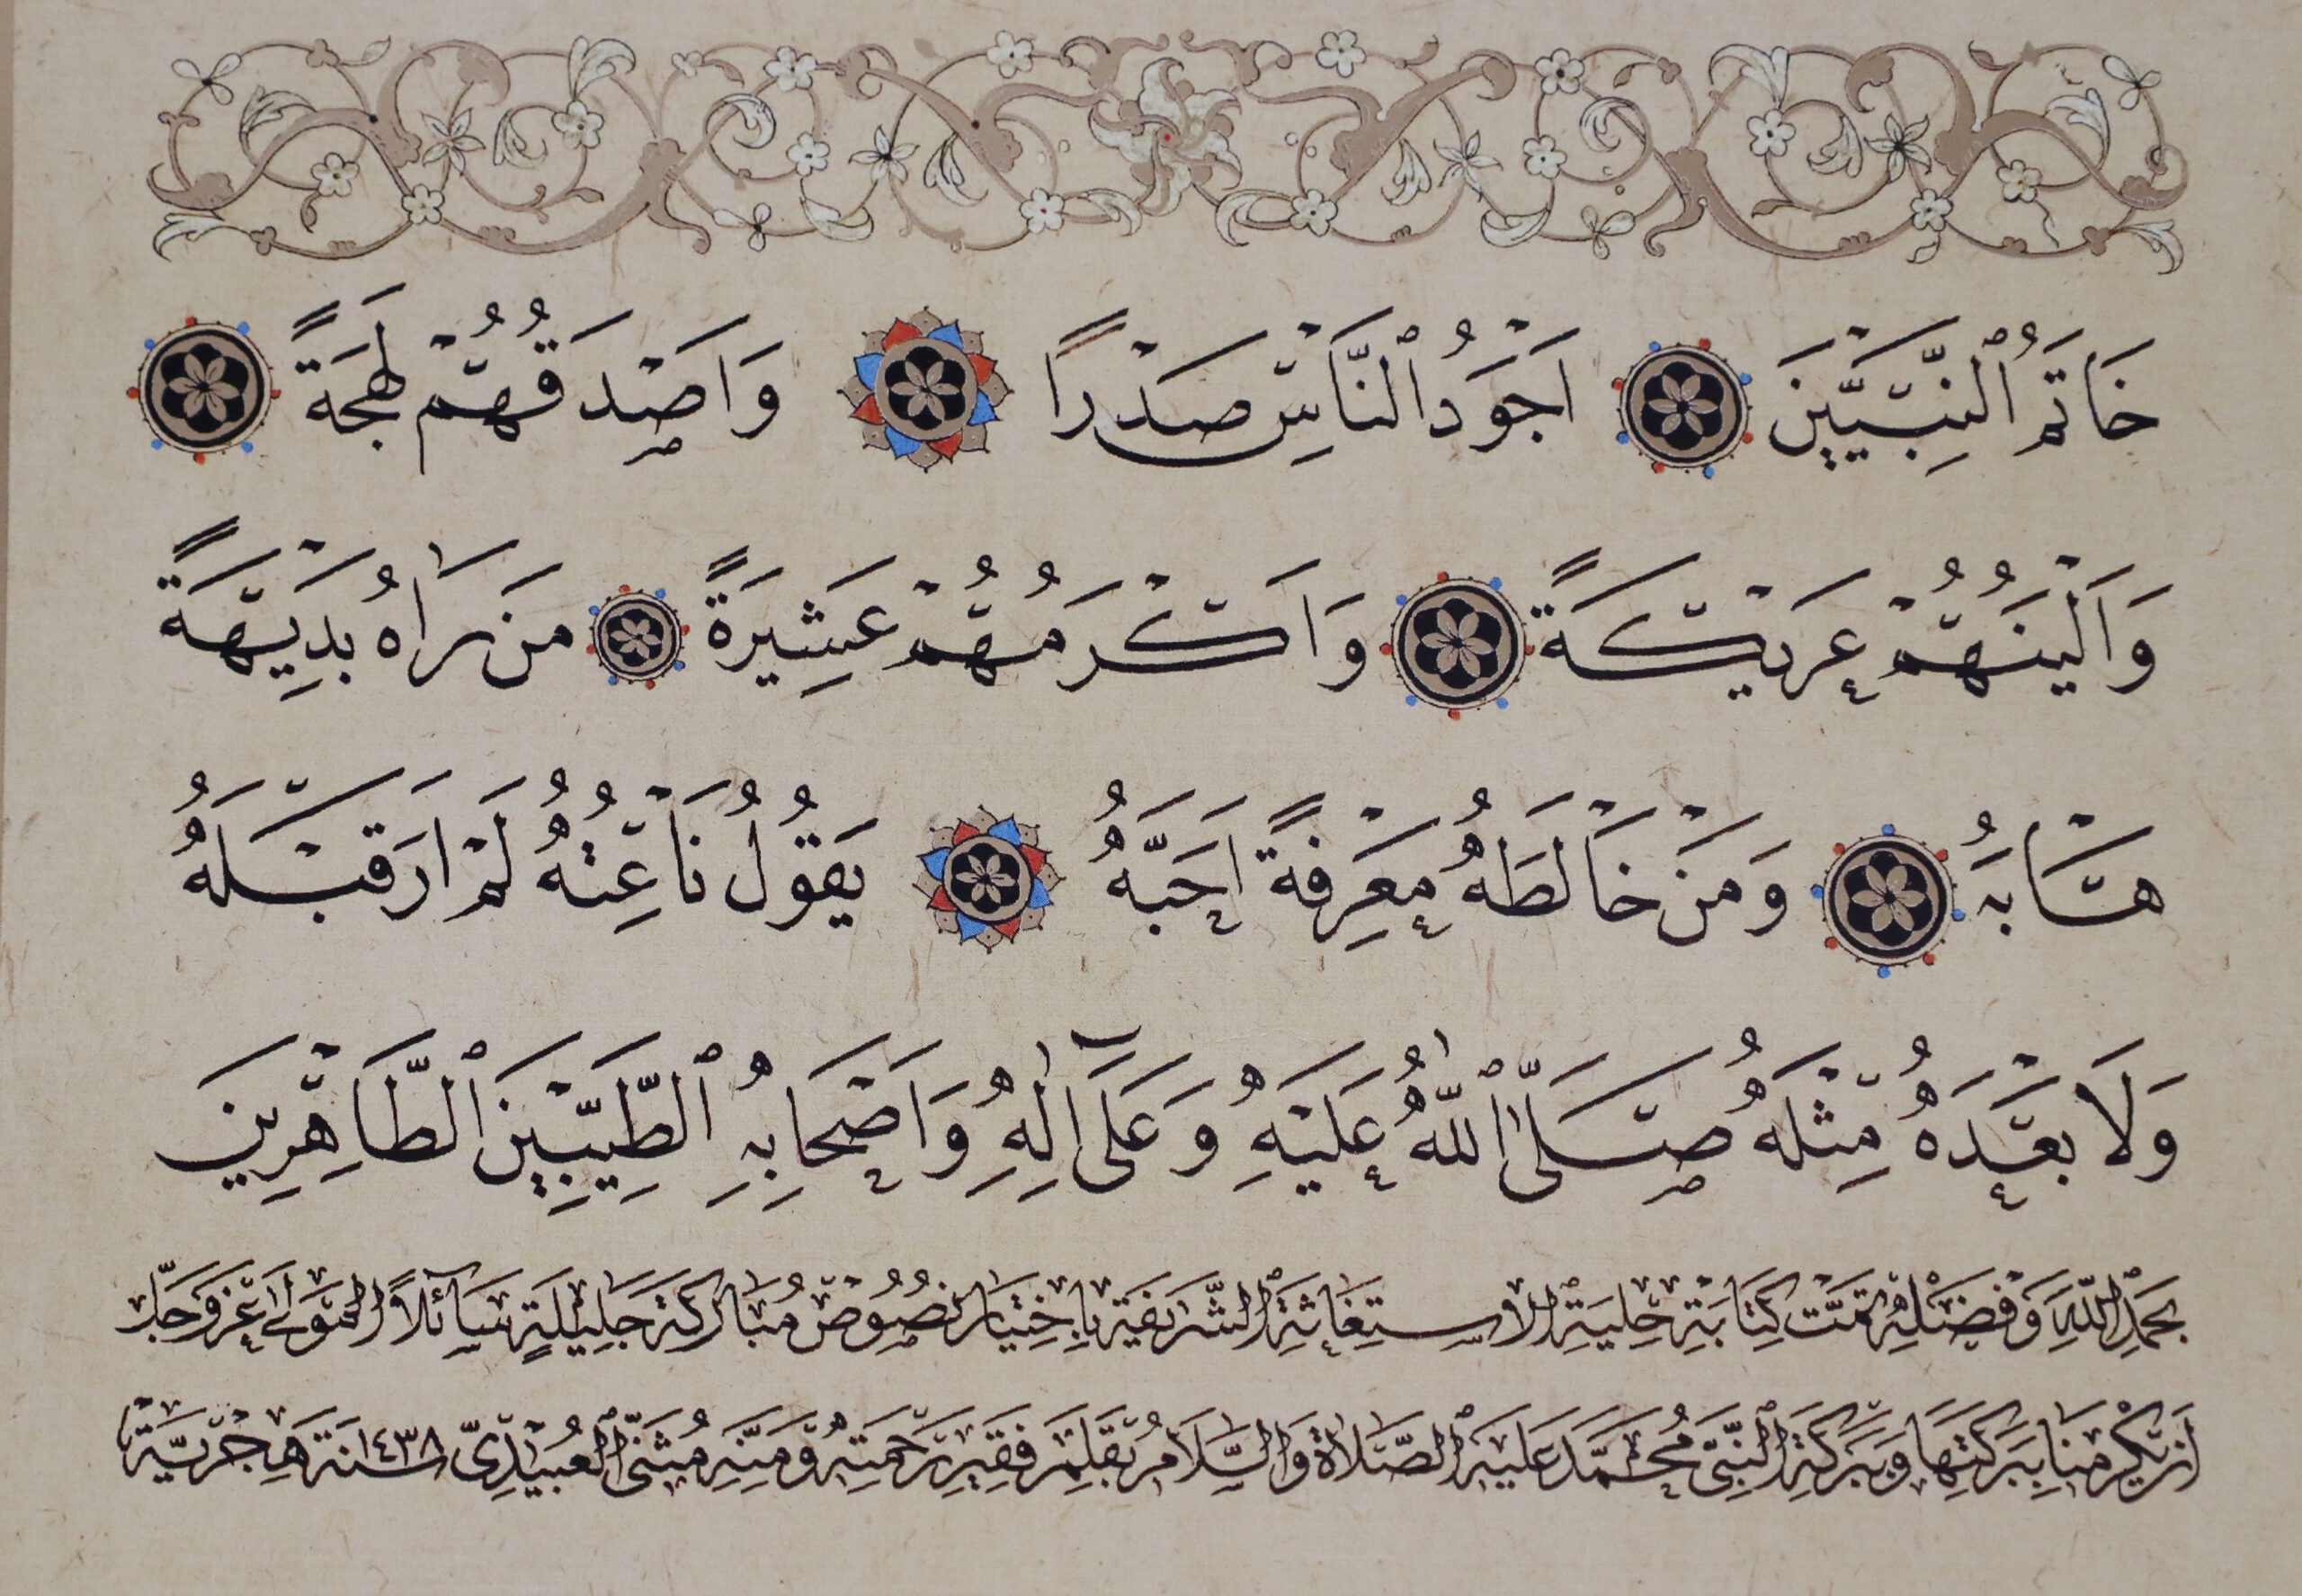 خَاتَمُ ٱلنَّبِيِّيْنَ اَجْوَدُ ٱلنَّاسِ صَدْرًا وَاَصْدَقُهُمْ لَهْجَةً
وَاَلْيَنُهُمْ عَرِيْكَةً وَاَكْرَمُهُمْ عَشِيْرَةً مَنْ رَاٰهُ بَدِيْهَةً
هَابَهُ وَمَنْ خَالَطَهُ مَعْرِفَةً اَحَبَّهُ يَقُوْلُ نَاعِتُهُ لَمْ اَرَ قَبْلَهُ
وَلَا بَعْدَهُ مِثْلَهُ صَلَّى ٱللّٰهُ عَلَيْهِ وَعَلَىٰ اٰلِهِ وَاَصْحَابِهِ ٱلطَّيِّبِيْنَ ٱلطَّاهِرِيْنَ
بِحَمْدِ ٱللّٰهِ وَفَضْلِهِ تَمَّتْ كِتَابَةُ حِلْيَةِ ٱلاسْتِغَاثَةِ ٱلشَّرِيفَةِ بِاخْتِيَارِ نُصُوصٍ مُبَارَكَةٍ جَلِيلَةٍ سَائِلًا ٱلْمَوْلَى عَزَّ وَجَلَّ
أَنْ يُكْرِمَنَا بِبَرَكَتِهَا وَبَرَكَةِ ٱلنَّبِيِّ مُحَمَّدٍ عَلَيْهِ ٱلصَّلَاةُ وَالسَّلَامُ بِقَلَمِ فَقِيرِ رَحْمَتِهِ وَمَنِّهِ مُثَنَّى ٱلْعُبَيْدِيِّ سَنَةَ ١٤٣٨ هِجْرِيَّةً